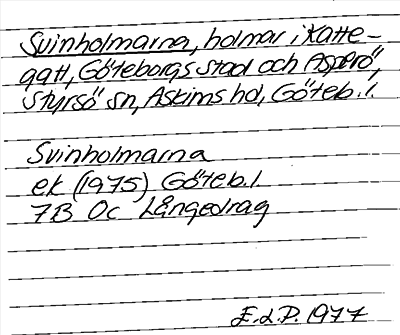 Svinholmarna, holmar i Katte-
gatt, Göteborgs stad och Asperö,
Styrsö sn, Askims hd, Göteb. l.
Svinholmarna
ek (1975) Göteb. l
7B Oc Långedrag
E.d.P. 1977